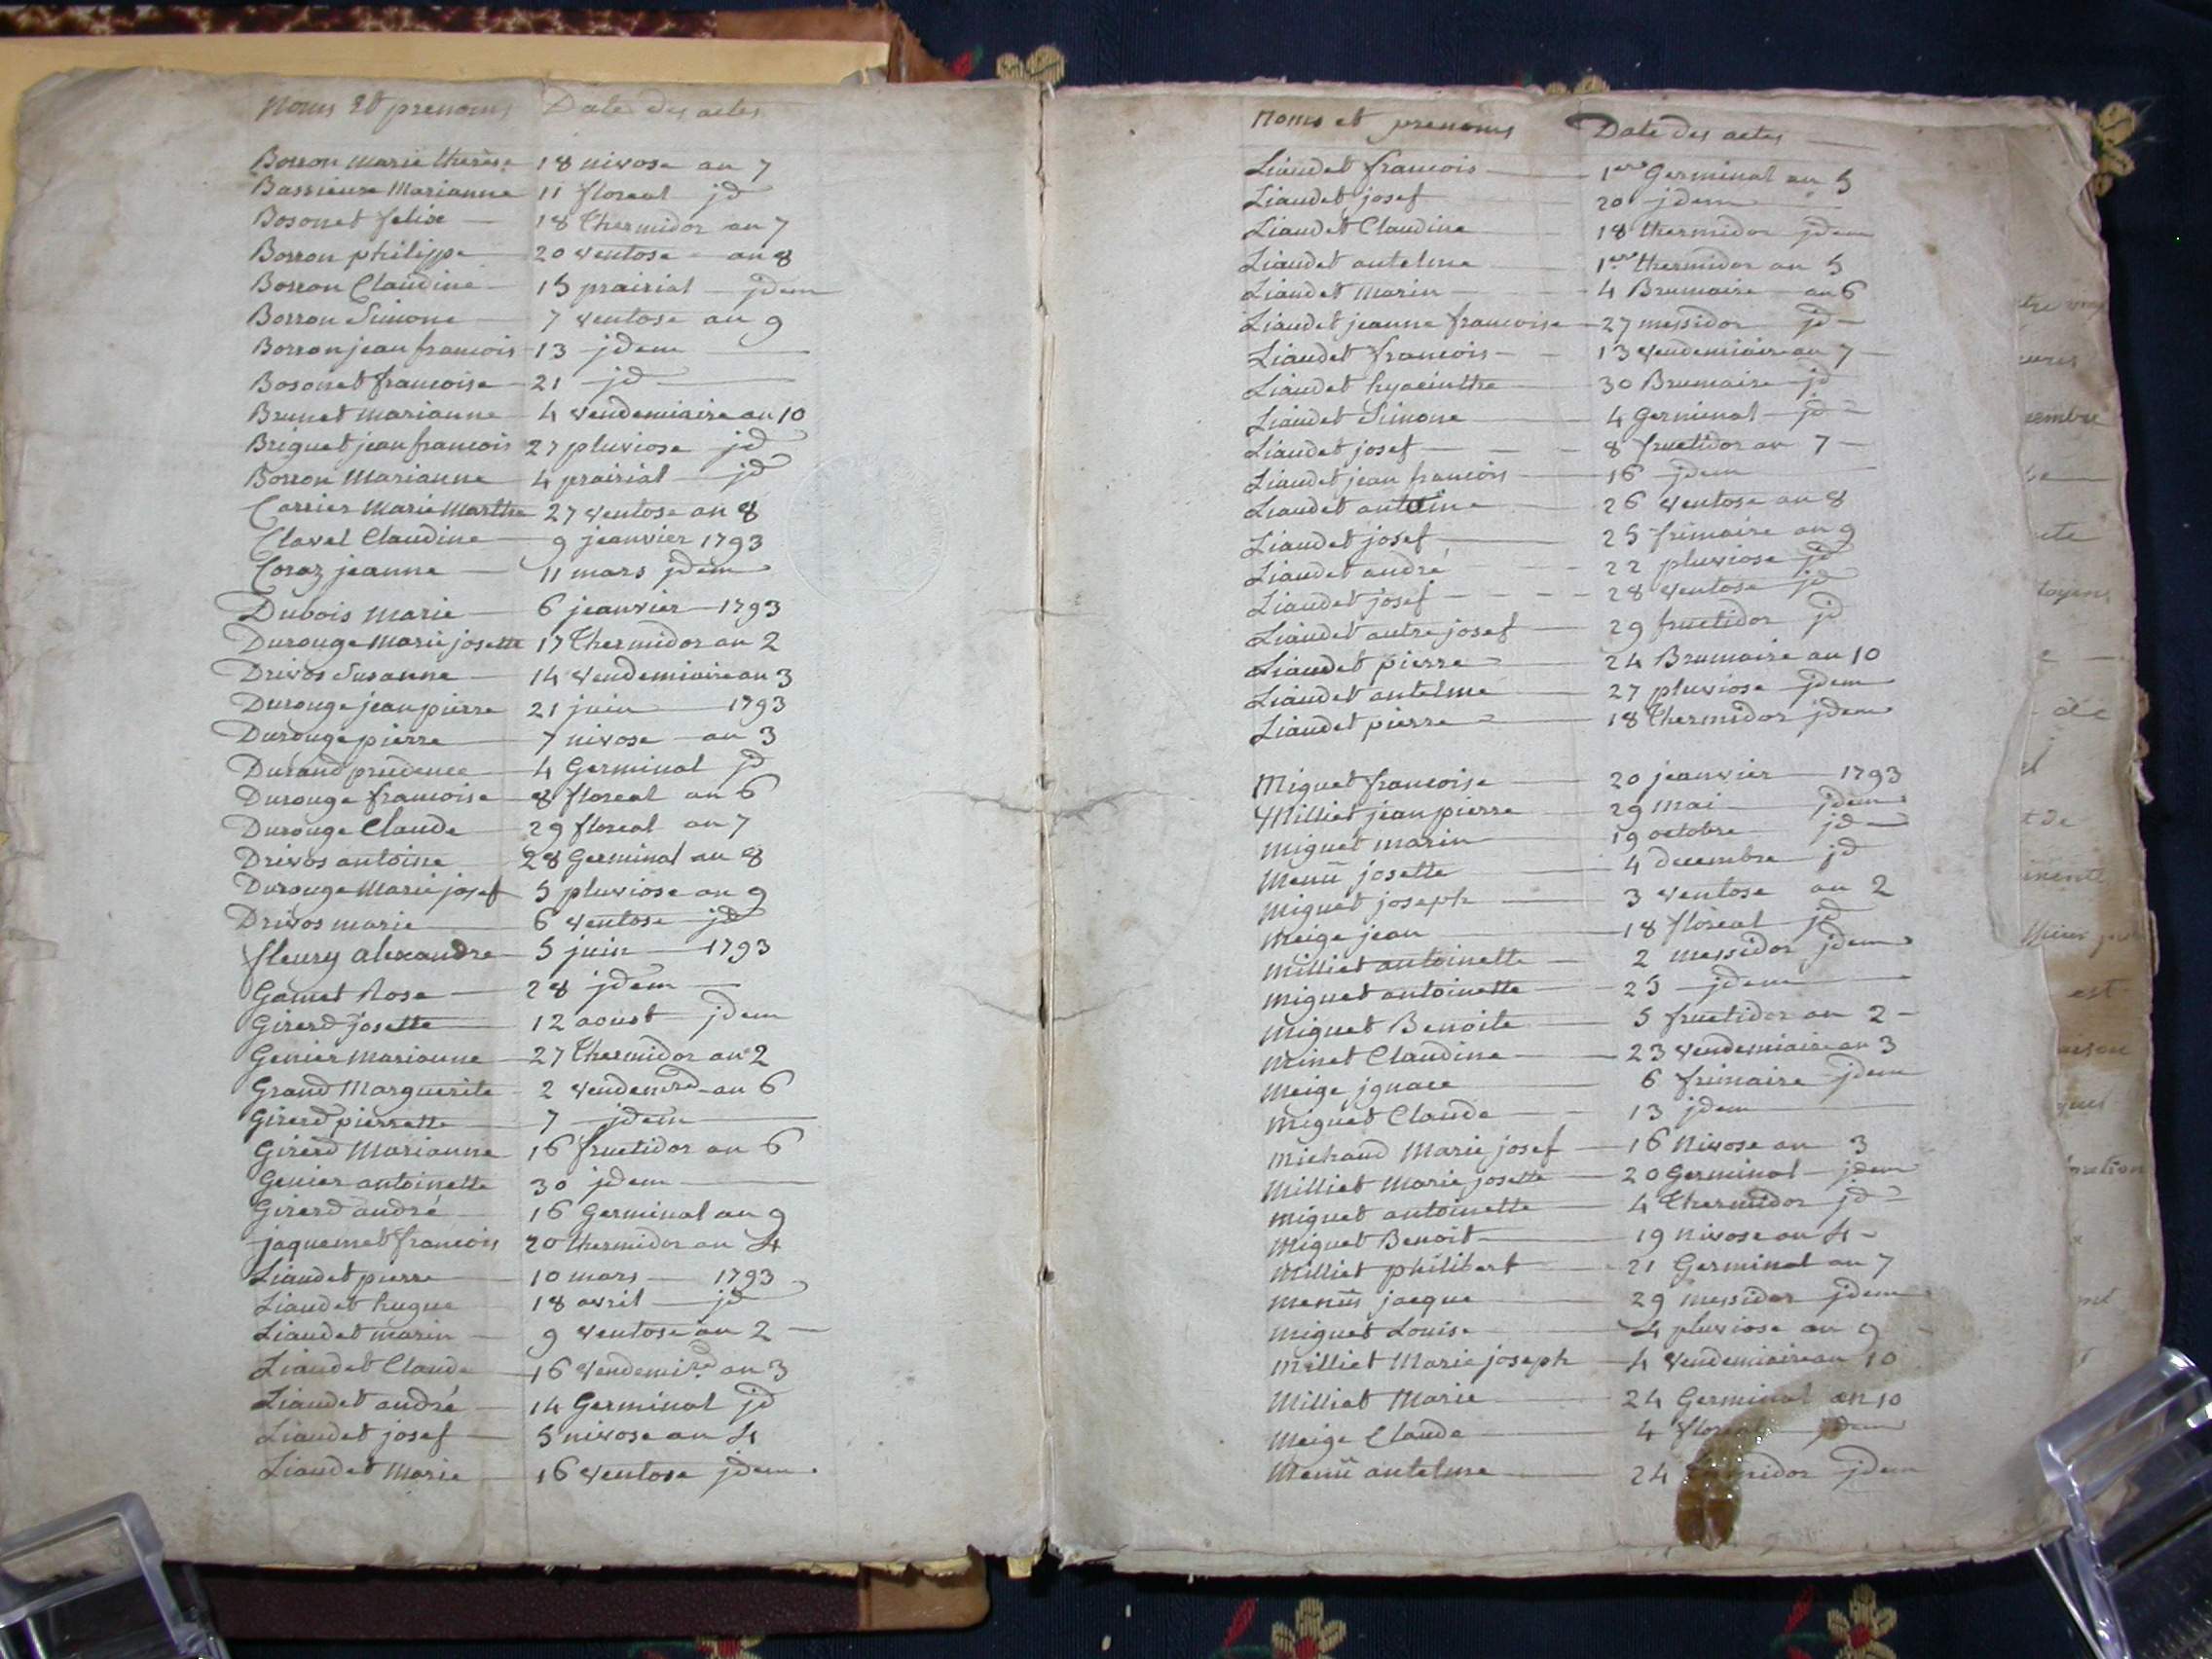 Noms Et prenoms Date des actes
Borron marie therèse 18 nivose an 7
Bassieux Marianne 11 floreal jd
Bosonet felix 18 thermidor an 7
Borron philippe 20 ventose an 8
Borron Claudine 15 prairial jdem
Borron Simone 7 ventose an 9
Borron jean francois 13 jdem
Bosonet francoise 21 jd
Brunet marianne 4 vendemiaire an 10
Briguet jean francois 27 pluviose jd
Borron Marianne 4 prairial jd
Carrier Marie Marthe 27 ventose an 8
Clavel Claudine 9 jeanvier 1793
Coraz jeanne 11 mars jdem
Dubois marie 6 jeanvier 1793
Durouge Marie josette 17 thermidor an 2
Drivos Susanne 14 vendemiaire an 3
Durouge jean pierre 21 juin 1793
Durouge pierre 7 nivose an 3
Durand prudence 4 Germinal jd
Durouge francoise 8 floreal an 6
Durouge Claude 29 floreal an 7
Drivos antoine 28 Germinal an 8
Durouge Marie josef 5 pluviose an 9
Drivos marie 6 ventose jd
fleury alexandre 5 juin 1793
Gamet Rose 28 jdem
Girerd josette 12 aoust jdem
Genier marianne 27 thermidor an 2
Grand Marguerite 2 vendemre an 6
Girerd pierrette 7 jdem
Girerd Marianne 16 fructidor an 6
Genier antoinette 30 jdem
Girerd andré 16 Germinal an 9
jaquemet francois 20 thermidor an 4
Liaudet pierre 10 mars 1793
Liaudet hugue 18 avril jd
Liaudet marin 9 ventose an 2
Liaudet Claude 16 vendemire an 3
Liaudet andré 14 Germinal jd
Liaudet josef 5 nivose an 4
Liaudet Marie 16 ventose jdem
Noms et prenoms Date des actes
Liaudet francois 1er Germinal an 5
Liaudet josef 20 jdem
Liaudet Claudine 18 thermidor jdem
Liaudet antelme 1er thermidor an 5
Liaudet Marin 4 Brumaire an 6
Liaudet jeanne francoise 27 messidor jd
Liaudet francois 13 vendemiaire an 7
Liaudet hyacinthe 30 Brumaire jd
Liaudet Simone 4 Germinal jd
Liaudet josef 8 fructidor an 7
Liaudet jean francois 16 jdem
Liaudet antoine 26 ventose an 8
Liaudet josef 25 frimaire an 9
Liaudet andré 22 pluviose jd
Liaudet josef 28 ventose jd
Liaudet autre josef 29 fructidor jd
Liaudet pierre 24 Brumaire an 10
Liaudet antelme 27 pluviose jdem
Liaudet pierre 18 thermidor jdem
Miguet francoise 20 jeanvier 1793
Milliet jean pierre 29 mai jdem
miguet marin 19 octobre jd
Menü josette 4 decembre jd
Miguet joseph 3 ventose an 2
Meige jean 18 floreal jd
Milliet antoinette 2 messidor jdem
Miguet antoinette 25 jdem
Miguet Benoite 5 fructidor an 2
Minet Claudine 23 vendemiaire an 3
Meige jgnace 6 frimaire jdem
Miguet Claude 13 jdem
Michaud Marie josef 16 Nivose an 3
Milliet Marie josette 20 Germinal jdem
Miguet antoinette 4 thermidor jd
Miguet Benoit 19 nivose an 4
Milliet philibert 21 Germinal an 7
Menüs jacque 29 messidor jdem
Miguet Louise 4 pluviose an 9
Milliet Marie joseph 4 vendemiaire an 10
Milliet Marie 24 Germinal an 10
Meige Claude 4 jdem
Menü antelme 24 jdem